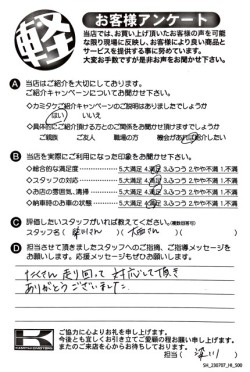 軽
お客様アンケート
当店では、お買い上げ頂いたお客様の声を可能
な限り現場に反映し、お客様により良い商品と
サービスを提供する事に努めています。
大変お手数ですが是非お声をお聞かせ下さい。
A 当店はご紹介を大切にしております。
ご紹介キャンペーンについてお聞かせ下さい。
◇カミタケご紹介キャンペーンのご説明はありましたでしょうか
はい いいえ
◇具体的にご紹介頂ける方とのご関係をお聞かせ頂けますでしょうか
ご親族 ご友人 職場の方 機会があればご紹介したい
B 当店を実際にご利用になった印象をお聞かせ下さい。
◇総合的な満足度 5.大満足 4.満足 3.ふつう 2.やや不満 1.不満
◇スタッフの対応 5.大満足 4.満足 3.ふつう 2.やや不満 1.不満
◇お店の雰囲気、清掃 5.大満足 4.満足 3.ふつう 2.やや不満 1.不満
◇納車時のお車の状態 5.大満足 4.満足 3.ふつう 2.やや不満 1.不満
C 評価したいスタッフがいれば教えてください。(複数回答可)
スタッフ名( さん)( さん)( )
D 担当させて頂きましたスタッフへのご指摘、ご指導メッセージを
お願いします。応援メッセージもぜひお願いします。
たくさん 走り回って 対応して頂き
ありがとうございました。
ご協力に心よりお礼を申し上げます。
今後とも宜しくお引き立てご愛顧の程お願い申し上げます。
またのご来店を心からお待ちしております。
担当( )
SH_230707_HI_500